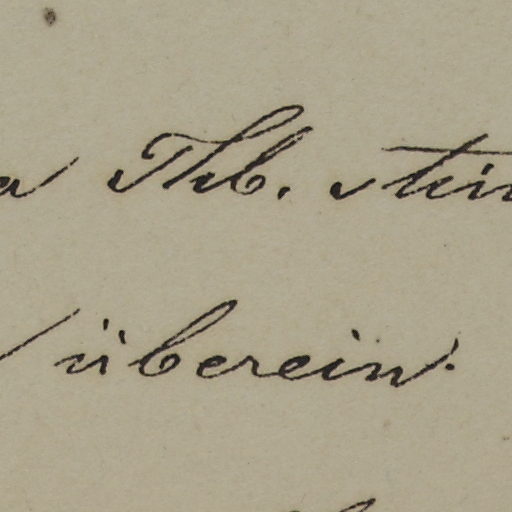 a Thb. stim
überein.